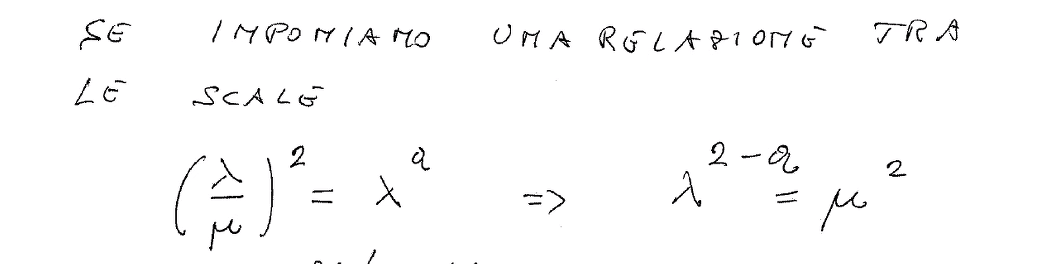 SE IMPONIAMO UNA RELAZIONE TRA
LE SCALE
(λ/μ)^2 = λ^a => λ^{2-a} = μ^2